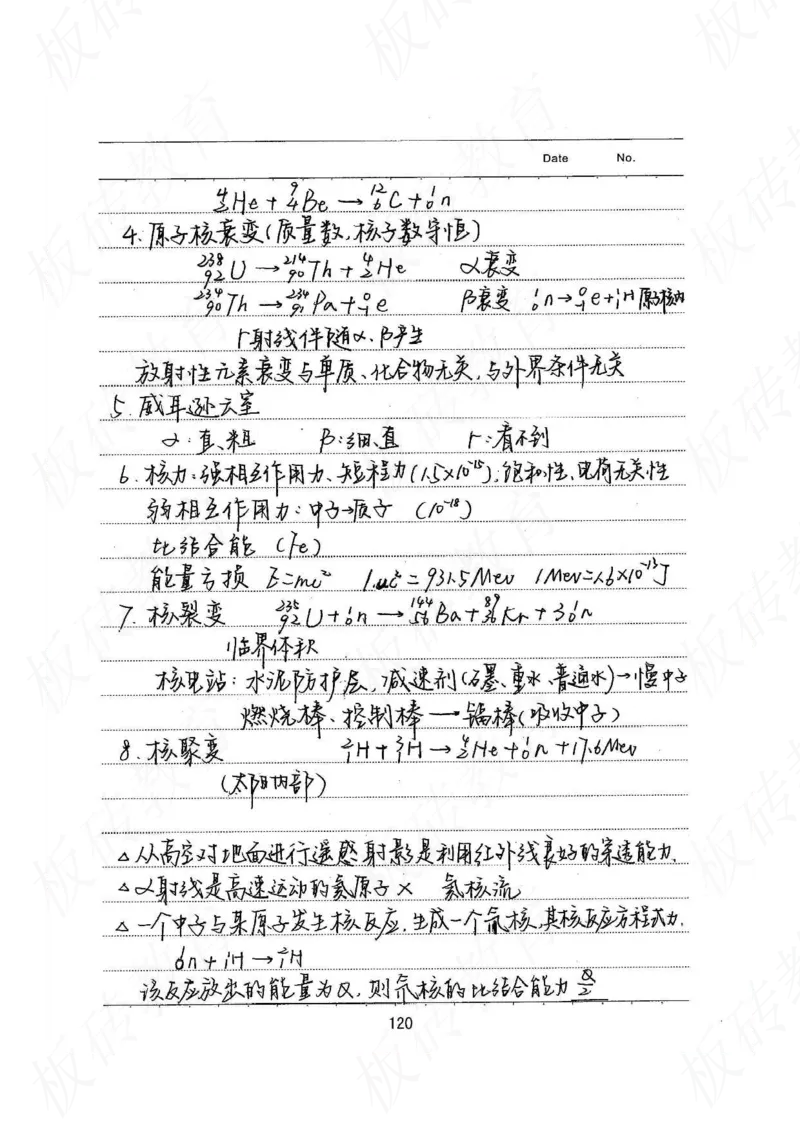 Date No.
⁴₂He + ⁹₄Be → ¹²₆C + ¹₀n
4. 原子核衰变(质量数,核子数守恒)
²³⁸₉₂U → ²¹⁴₉₀Th + ⁴₂He α衰变
²³⁴₉₀Th → ²³⁴₉₁Pa + ⁰₋₁e β衰变 ¹₀n → ⁰₋₁e + ¹₁H 原子核内
γ射线伴随α、β产生
放射性元素衰变与单质、化合物无关,与外界条件无关
5. 威耳逊云室
α:直、粗 β:细、直 γ:看不到
6. 核力:强相互作用力、短程力(1.5×10⁻¹⁵);饱和性、电荷无关性
弱相互作用力:中子→质子 (10⁻¹⁸)
比结合能 (Fe)
能量亏损 E=mc² 1uc²=931.5Mev 1Mev=1.6×10⁻¹³J
7. 核裂变 ²³⁵₉₂U + ¹₀n → ¹⁴⁴₅₆Ba + ⁸⁹₃₆Kr + 3¹₀n
临界体积
核电站:水泥防护层,减速剂(石墨、重水、普通水)→慢中子
燃烧棒、控制棒 — 镉棒(吸收中子)
8. 核聚变 ²₁H + ³₁H → ⁴₂He + ¹₀n + 17.6Mev
(太阳内部)
△ 从高空对地面进行遥感射影是利用红外线良好的穿透能力.
△ α射线是高速运动的氦原子 × 氦核流
△ 一个中子与某原子发生核反应,生成一个氘核,其核反应方程式为.
¹₀n + ¹₁H → ²₁H
该反应放出的能量为Q,则氘核的比结合能为 Q/2
120
板砖教育